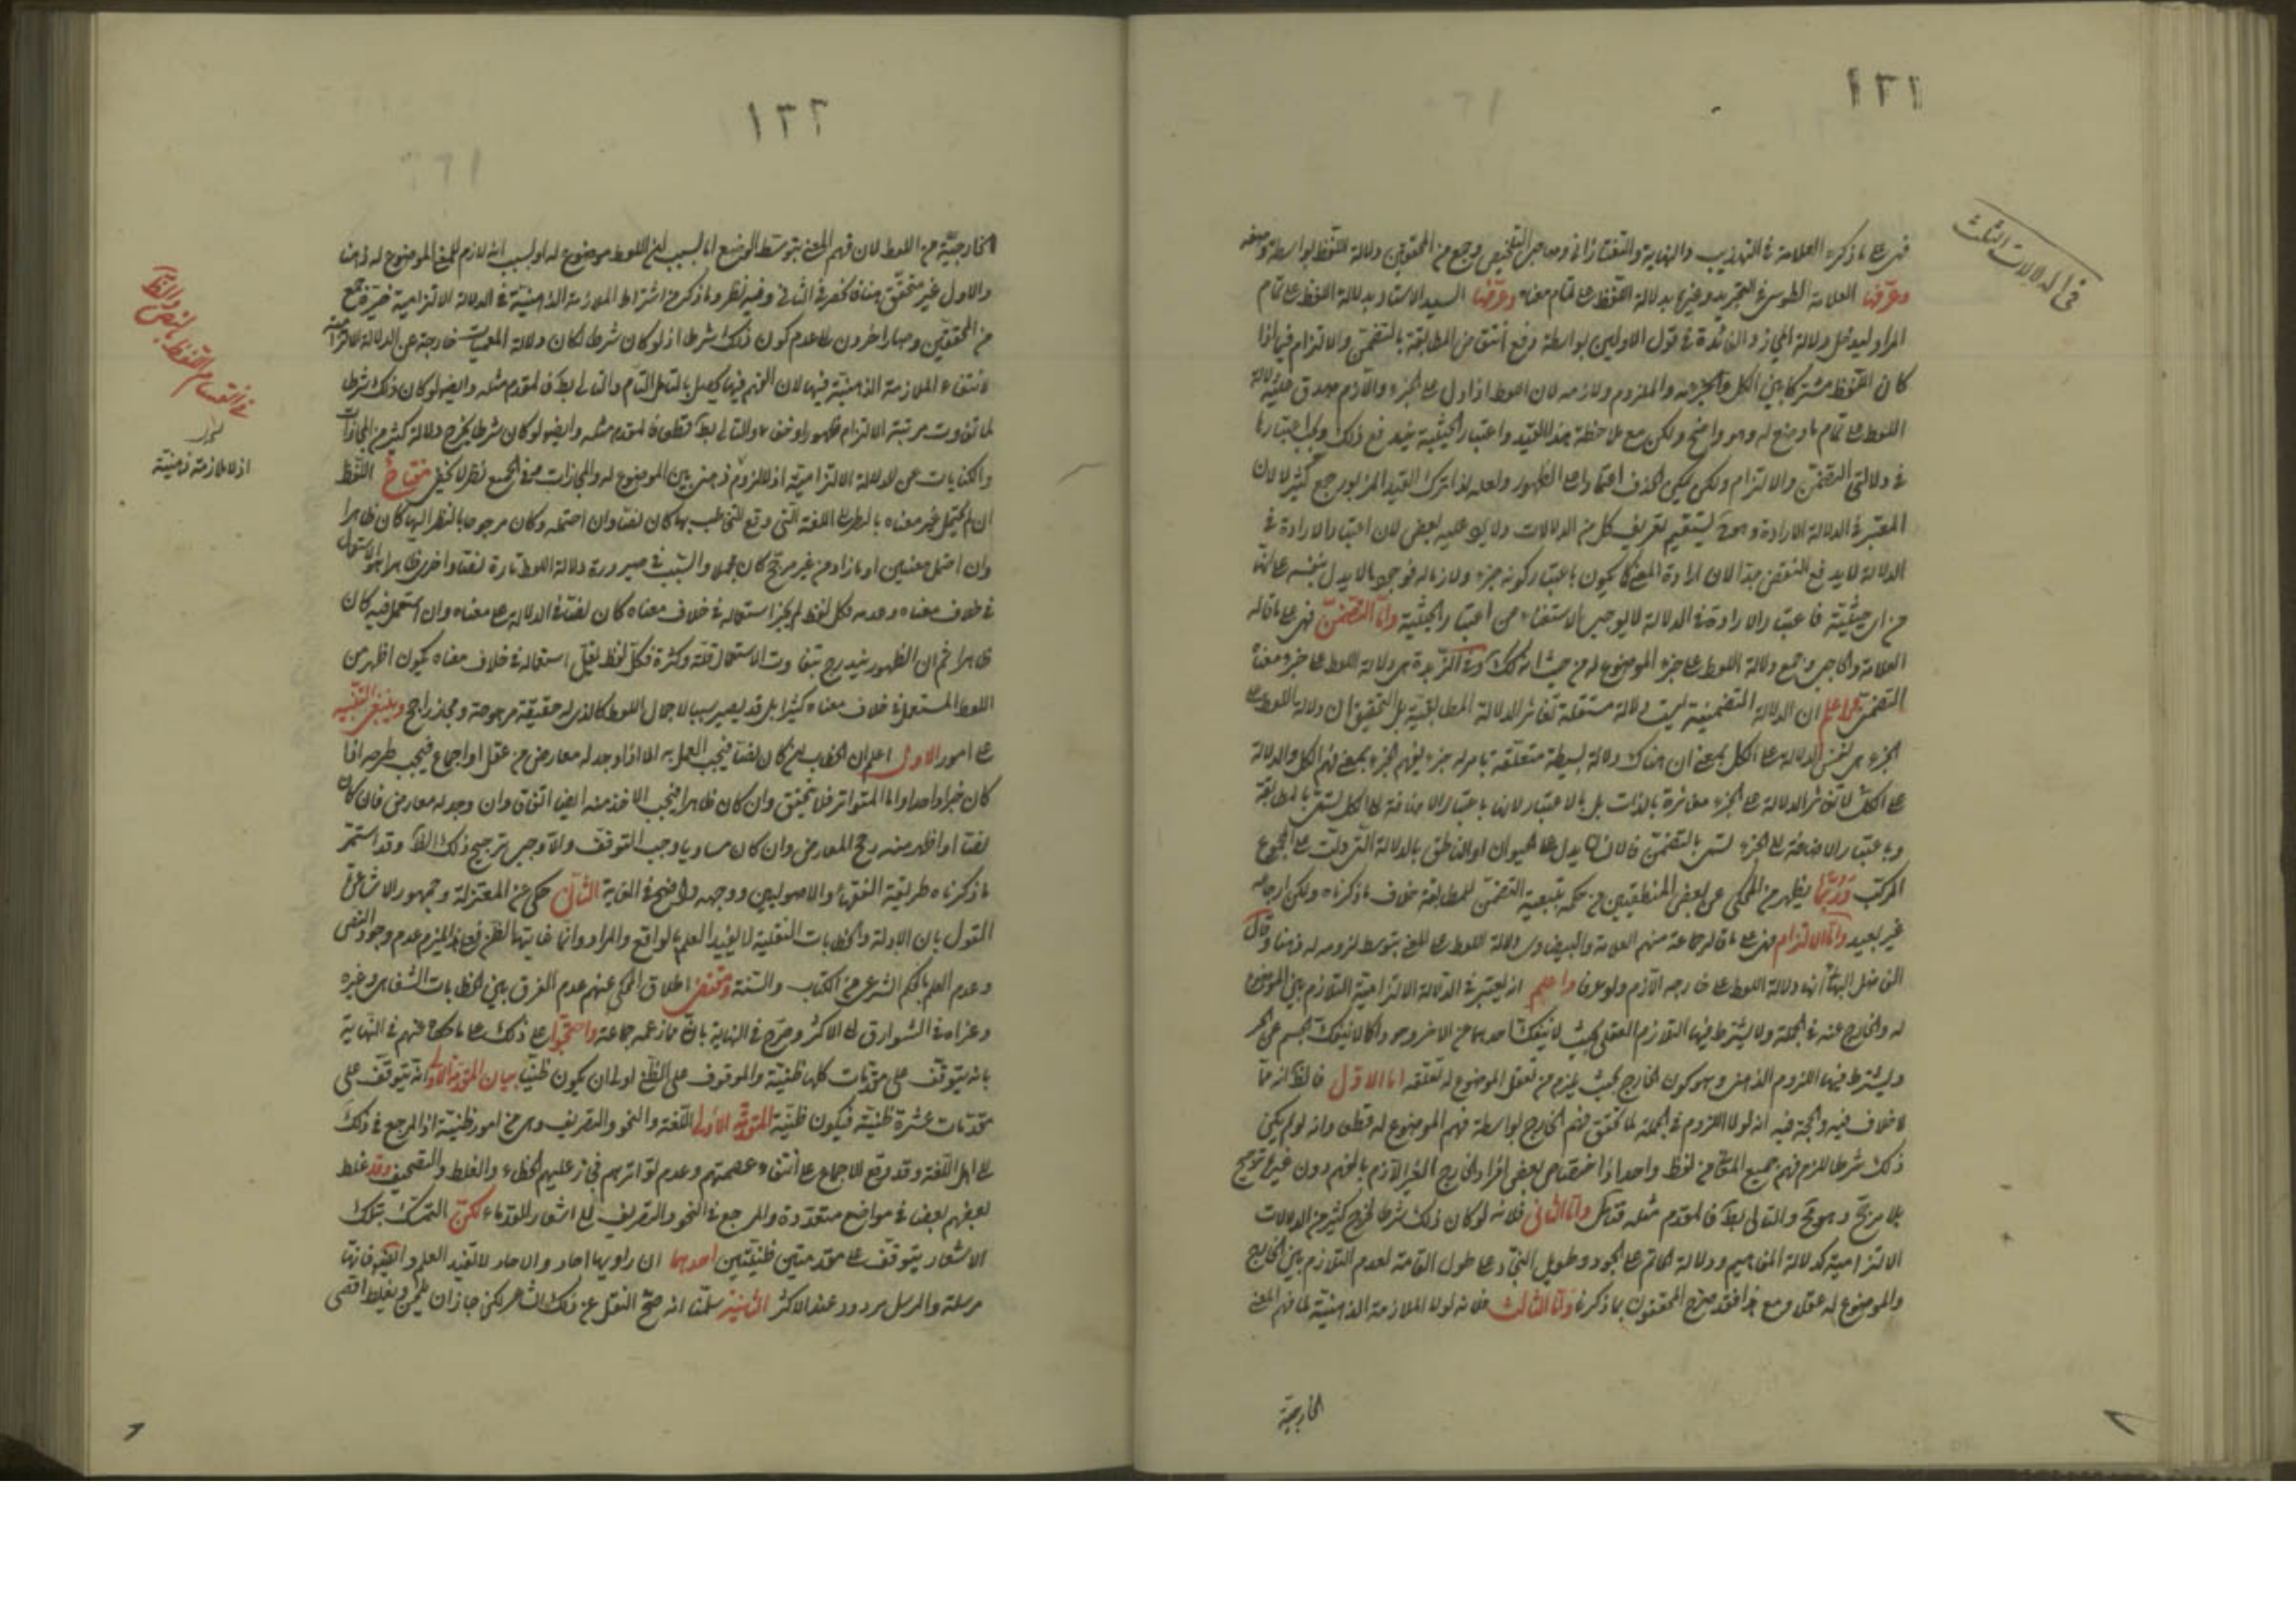 ١٢١
في الدلالات الثلث
فهي على ما ذكره العلامة في التهذيب والنهاية والتفتازاني وصاحب التلخيص وجمع من المحققين دلالة اللفظ بواسطة وضعه
وعرّفها العلامة الطوسي في التجريد وغيره بدلالة اللفظ على تمام معناه وعرّفها السيد الاستاد بدلالة اللفظ على تمام
المراد ليدخل دلالة المجاز والفائدة في قول الاولين بواسطة دفع انتقاض المطابقة بالتضمن والالتزام فيما اذا
كان اللفظ مشتركا بين الكل والجزء والملزوم ولازمه لان اللفظ اذا دل على الجزء واللازم صدق عليه دلالة
اللفظ على تمام ما وضع له وهو واضح ولكن مع ملاحظة هذا القيد واعتبار الحيثية يندفع ذلك ويجب اعتبارها
في دلالتي التضمن والالتزام ولكن يمكن الحذف اعتمادا على الظهور ولعله لذا ترك القيد المزبور جمع كثير لا لان
المعتبر في الدلالة الارادة وهو ح يستقيم تعريف كل من الدلالات ولا يرد عليه بعض لان اعتبار الارادة في
الدلالة لا يدفع النقض جدا لان ارادة المعنى كما يكون باعتبار كونه جزء ولازما له فوجودها لا يدل بنفسه على انها
من اي حيثية فاعتبار الارادة في الدلالة لا يوجب الاستغناء عن اعتبار الحيثية وامّا التضمن فهي على ما قاله
العلامة والحاجبي وجمع دلالة اللفظ على جزء الموضوع له من حيث انه كذلك وفي الزبدة هي دلالة اللفظ على جزء معناه
التضمن واعلم ان الدلالة التضمنية ليست دلالة مستقلة تغاير الدلالة المطابقية بل التحقيق ان دلالة اللفظ على
الجزء هي نفس الدلالة على الكل بمعنى ان هناك دلالة بسيطة متعلقة بامر له جزء يفهم الجزء بمعنى فهم الكل والدلالة
على الكل لا تغاير الدلالة على الجزء مغايرة بالذات بل بالاعتبار لانها باعتبار الاضافة الى الكل تسمى بالمطابقة
وباعتبار الاضافة الى الجزء تسمى بالتضمن فالانسان يدل على الحيوان او الناطق بالدلالة التي دلت على المجموع
المركب وربّما يظهر من المحكي عن بعض المنطقيين من حكمه بتبعية التضمن للمطابقة خلاف ما ذكرناه ولكن ارجاعه
غير بعيد وامّا الالتزام فهي على ما قاله جماعة منهم العلامة والبيضاوي دلالة اللفظ على المعنى بتوسط لزومه له ذهنا وقال
الفاضل البهائي انها دلالة اللفظ على خارجه اللازم ولو عرفا واعلم انه يعتبر في الدلالة الالتزامية التلازم بين الموضوع
له والخارج عنه في الجملة ولا يشترط فيها التلازم العقلي بحيث لا ينفك احدهما عن الاخر وجودا كما لا ينفك الجسم عن الحيز
ويشترط فيها اللزوم الذهني وهو كون الخارج بحيث يلزم من تعقل الموضوع له تعقله اما الاوّل فالظ انه مما
لا خلاف فيه والحجة فيه انه لولا اللزوم في الجملة لما تحقق فهم الخارج بواسطة فهم الموضوع له قطعا وانه لو لم يكن
ذلك شرطا للزم فهم جميع المعاني من لفظ واحد اذ اختصاص بعض افراد الخارج الغير اللازم بالفهم دون غيره ترجيح
بلا مرجح وهو قبيح والتالي بط فالمقدم مثله فتامل وامّا الثاني فلانه لو كان ذلك شرطا لخرج كثير من الدلالات
الالتزامية كدلالة المفاهيم ودلالة الحاتم على الجود وطويل النجاد على طول القامة لعدم التلازم بين الخارج
والموضوع له عقلا ومع هذا فقد صرح المحققون بما ذكرنا وامّا الثالث فلانه لولا الملازمة الذهنية لما فهم المعنى
الخارجية
١٢٢
الخارجية من اللفظ لان فهم المعنى بتوسط الوضع اما لسبب ان اللفظ موضوع له او لسبب انه لازم للمعنى الموضوع له ذهنا
والاول غير متحقق هنا فانحصر في الثاني وفيه نظر وما ذكر من اشتراط الملازمة الذهنية في الدلالة الالتزامية خيرة جمع
من المحققين وصار اخرون الى عدم كون ذلك شرطا اذ لو كان شرطا لكان دلالة المعميات خارجة عن الدلالة الالتزامية
لانتفاء الملازمة الذهنية فيها لان الفهم فيها يحصل بالتامل التام والتالي بط فالمقدم مثله وايضا لو كان ذلك شرطا
لما تفاوت مرتبة الالتزام ظهورا وخفاء والتالي بط قطعا فالمقدم مثله وايضا لو كان شرطا يخرج دلالة كثير من المجازات
والكنايات عن الدلالة الالتزامية اذ لا لزوم ذهني بين الموضوع له والمجازات وفي الجميع نظر لا يخفى مفتاح اللفظ
ان لم يحتمل غير معناه بالنظر الى اللغة التي وقع التخاطب بها كان نصا وان احتمله وكان مرجوحا بالنظر اليها كان ظاهرا
وان احتمل معنيين او ما زاد من غير مرجح كان مجملا والسبب في صيرورة دلالة اللفظ تارة نصا واخرى ظاهرا هو الاستعمال
في خلاف معناه وعدمه فكل لفظ لم يجز استعماله في خلاف معناه كان نصا في الدلالة على معناه وان استعمل فيه كان
ظاهرا ثم ان الظهور يندرج بتفاوت الاستعمال قلة وكثرة فكل لفظ يقل استعماله في خلاف معناه يكون اظهر من
اللفظ المستعمل في خلاف معناه كثيرا بل قد يصير سببا لاجمال اللفظ كالذي له حقيقة مرجوحة ومجاز راجح وينبغي التنبيه
على امور الاول اعلم ان الخطاب ان كان نصا فيجب العمل به الا اذا وجد له معارض من عقل او اجماع فيجب طرحه اذا
كان خبرا واحدا واما المتواتر فلا يتحقق وان كان ظاهرا فيجب الاخذ منه ايضا اتفاقا وان وجد له معارض فان كان
نصا او اظهر منه رجح المعارض وان كان مساويا وجب التوقف والا وجب ترجيح ذلك الظ وقد استمر
ما ذكرناه طريقة الفقهاء والاصوليين ووجهه واضح في الغاية الثاني حكي عن المعتزلة وجمهور الاشاعرة
القول بان الادلة والخطابات النقلية لا يفيد العلم بالواقع والمراد وانما غايتها الظن فعلى هذا يلزم عدم وجود النص
وعدم العلم بالحكم الشرعي من الكتاب والسنة ومقتضى اطلاق المحكي عنهم عدم الفرق بين الخطابات الشفاهي وغيره
وعزاه في الشوارق الى الاكثر وصرح في النهاية بان ما زعمه جماعة واحتجوا على ذلك على ما حكاه عنهم في النهاية
بانه يتوقف على مقدمات كلها ظنية والموقوف على الظن اولى ان يكون ظنيا بيان المقدمة الاولى انه يتوقف على
مقدمات عشرة ظنية فيكون ظنية المقدمة الاولى اللغة والنحو والتصريف وهي من امور ظنية اذ المرجع في ذلك
الى اهل اللغة وقد وقع الاجماع على انتفاء عصمتهم وعدم تواترهم فجاز عليهم الخطاء والغلط والتصحيف وقد غلط
بعضهم بعضا في مواضع متعددة والمرجع في النحو والتصريف الى اشعار القدماء لكن التمسك بتلك
الاشعار يتوقف على مقدمتين ظنيتين احدهما ان راويها احاد والاحاد لا تفيد العلم وايضا فانها
مرسلة والمرسل مردود عند الاكثر الثانية سلمنا انه صح النقل عن ذلك الشاعر لكن جاز ان يلحن ويغلط اقصى
في انقسام اللفظ بالنص والظ
اذ لا ملازمة ذهنية